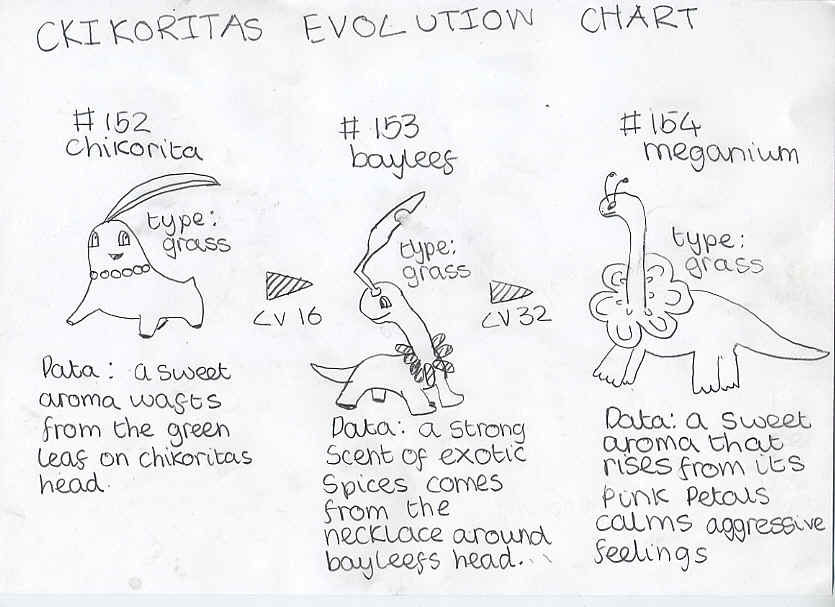 CKIKORITAS EVOLUTION CHART
#152
chikorita
type:
grass
LV 16
Data: a sweet
aroma wafts
from the green
leaf on chikoritas
head.
#153
bayleef
type:
grass
LV 32
Data: a strong
scent of exotic
spices comes
from the
necklace around
bayleefs head...
#154
meganium
type:
grass
Data: a sweet
aroma that
rises from its
pink petals
calms aggressive
feelings